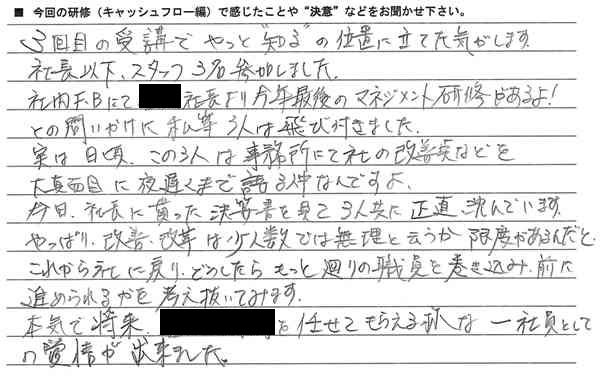 ■ 今回の研修（キャッシュフロー編）で感じたことや“決意”などをお聞かせ下さい。
3回目の受講でやっと“知る”の位置に立てた気がします。
社長以下、スタッフ3名参加しました。
社内F.Bにて 社長より今年最後のマネジメント研修があるよ!
との問いかけに私等3人は飛び付きました。
実は日頃、この3人は事務所にて社の改善案などを
大真面目に夜遅くまで語る仲なんですよ。
今日、社長に貰った決算書を見て3人共に正直、沈んでいます。
やっぱり、改善・改革は少人数では無理と云うか限度があるんだと。
これから社に戻り、どうしたらもっと廻りの職員を巻き込み、前に
進められるかを考え抜いてみます。
本気で将来、 を任せてもらえる様な一社員として
の覚悟が出来ました。